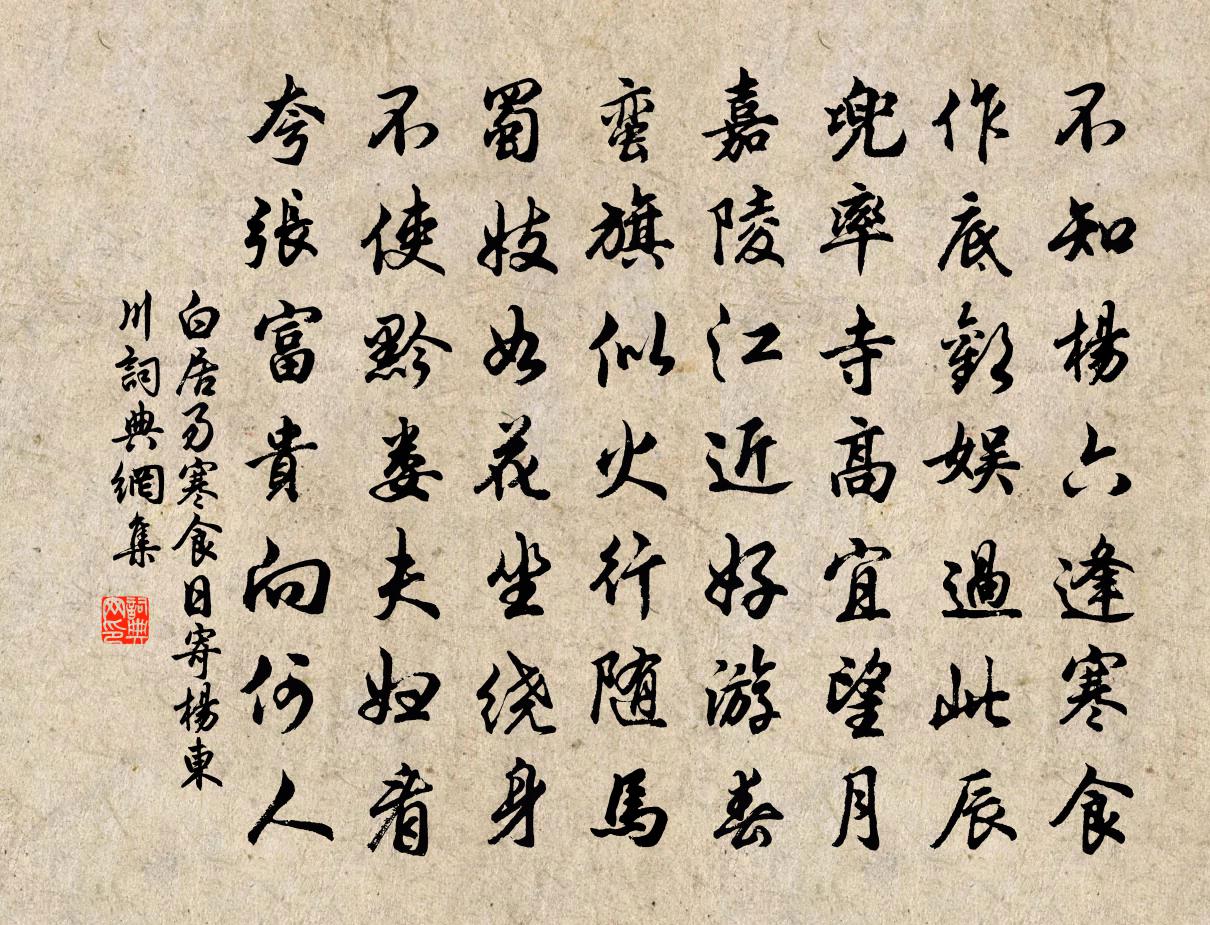 不知楊六逢寒食
作底歡娛過此辰
兜率寺高宜望月
嘉陵江近好游春
蛮旗似火行随馬
蜀妓如花坐绕身
不使黔婁夫妇看
夸張富貴向何人
白居易寒食日寄楊東
川詞典網集
詞典
网印